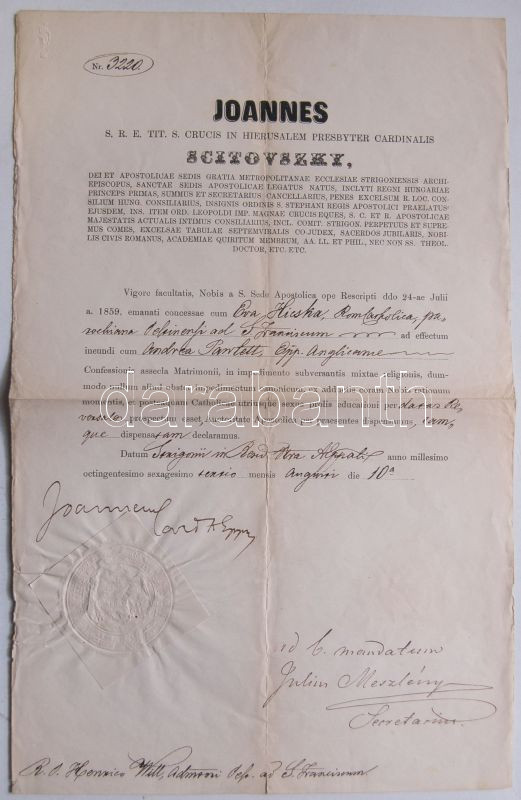 Nr. 3220.
JOANNES
S. R. E. TIT. S. CRUCIS IN HIERUSALEM PRESBYTER CARDINALIS
SCITOVSZKY,
DEI ET APOSTOLICAE SEDIS GRATIA METROPOLITANAE ECCLESIAE STRIGONIENSIS ARCHI-
EPISCOPUS, SANCTAE SEDIS APOSTOLICAE LEGATUS NATUS, INCLYTI REGNI HUNGARIAE
PRINCEPS PRIMAS, SUMMUS ET SECRETARIUS CANCELLARIUS, PENES EXCELSUM R. LOC. CON-
SILIUM HUNG. CONSILIARIUS, INSIGNIS ORDINIS S. STEPHANI REGIS APOSTOLICI PRAELATUS
EJUSDEM, INS. ITEM ORD. LEOPOLDI IMP. MAGNAE CRUCIS EQUES, S. C. ET R. APOSTOLICAE
MAJESTATIS ACTUALIS INTIMUS CONSILIARIUS, INCL. COMIT. STRIGON. PERPETUUS ET SUPRE-
MUS COMES, EXCELSAE TABULAE SEPTEMVIRALIS CO-JUDEX, SACERDOS JUBILARIS, NOBI-
LIS CIVIS ROMANUS, ACADEMIAE QUIRITUM MEMBRUM, AA. LL. ET PHIL., NEC NON SS. THEOL.
DOCTOR, ETC. ETC.
Vigore facultatis, Nobis a S. Sede Apostolica ope Rescripti ddo 24-ae Julii
a. 1859. emanati concessae cum Eva Hieska, Rom Catholica, pa-
rochiana ad S. Franciscum ad effectum
ineundi cum Andrea Anglicanae
Confessioni assecla Matrimonii, in impedimento subversantis mixtae religionis, dum-
modo nullum aliud obstet impedimentum canonicum, ex adductis coram Nobis rationum
momentis, et postquam Catholicae utriusque sexus prolis educationi per datas Re-
versales prospectum esset, Auctoritate Apostolica per praesentes dispensamus, eam-
que dispensatam declaramus.
Datum Strigonii in anno millesimo
octingentesimo sexagesimo tertio mensis Augusti die 10a
darabanth
Joannes
Card AEppus
ad C. mandatum
Julius Meszlény
Secretarius
R. D. Henrico Will, ad S. Franciscum.